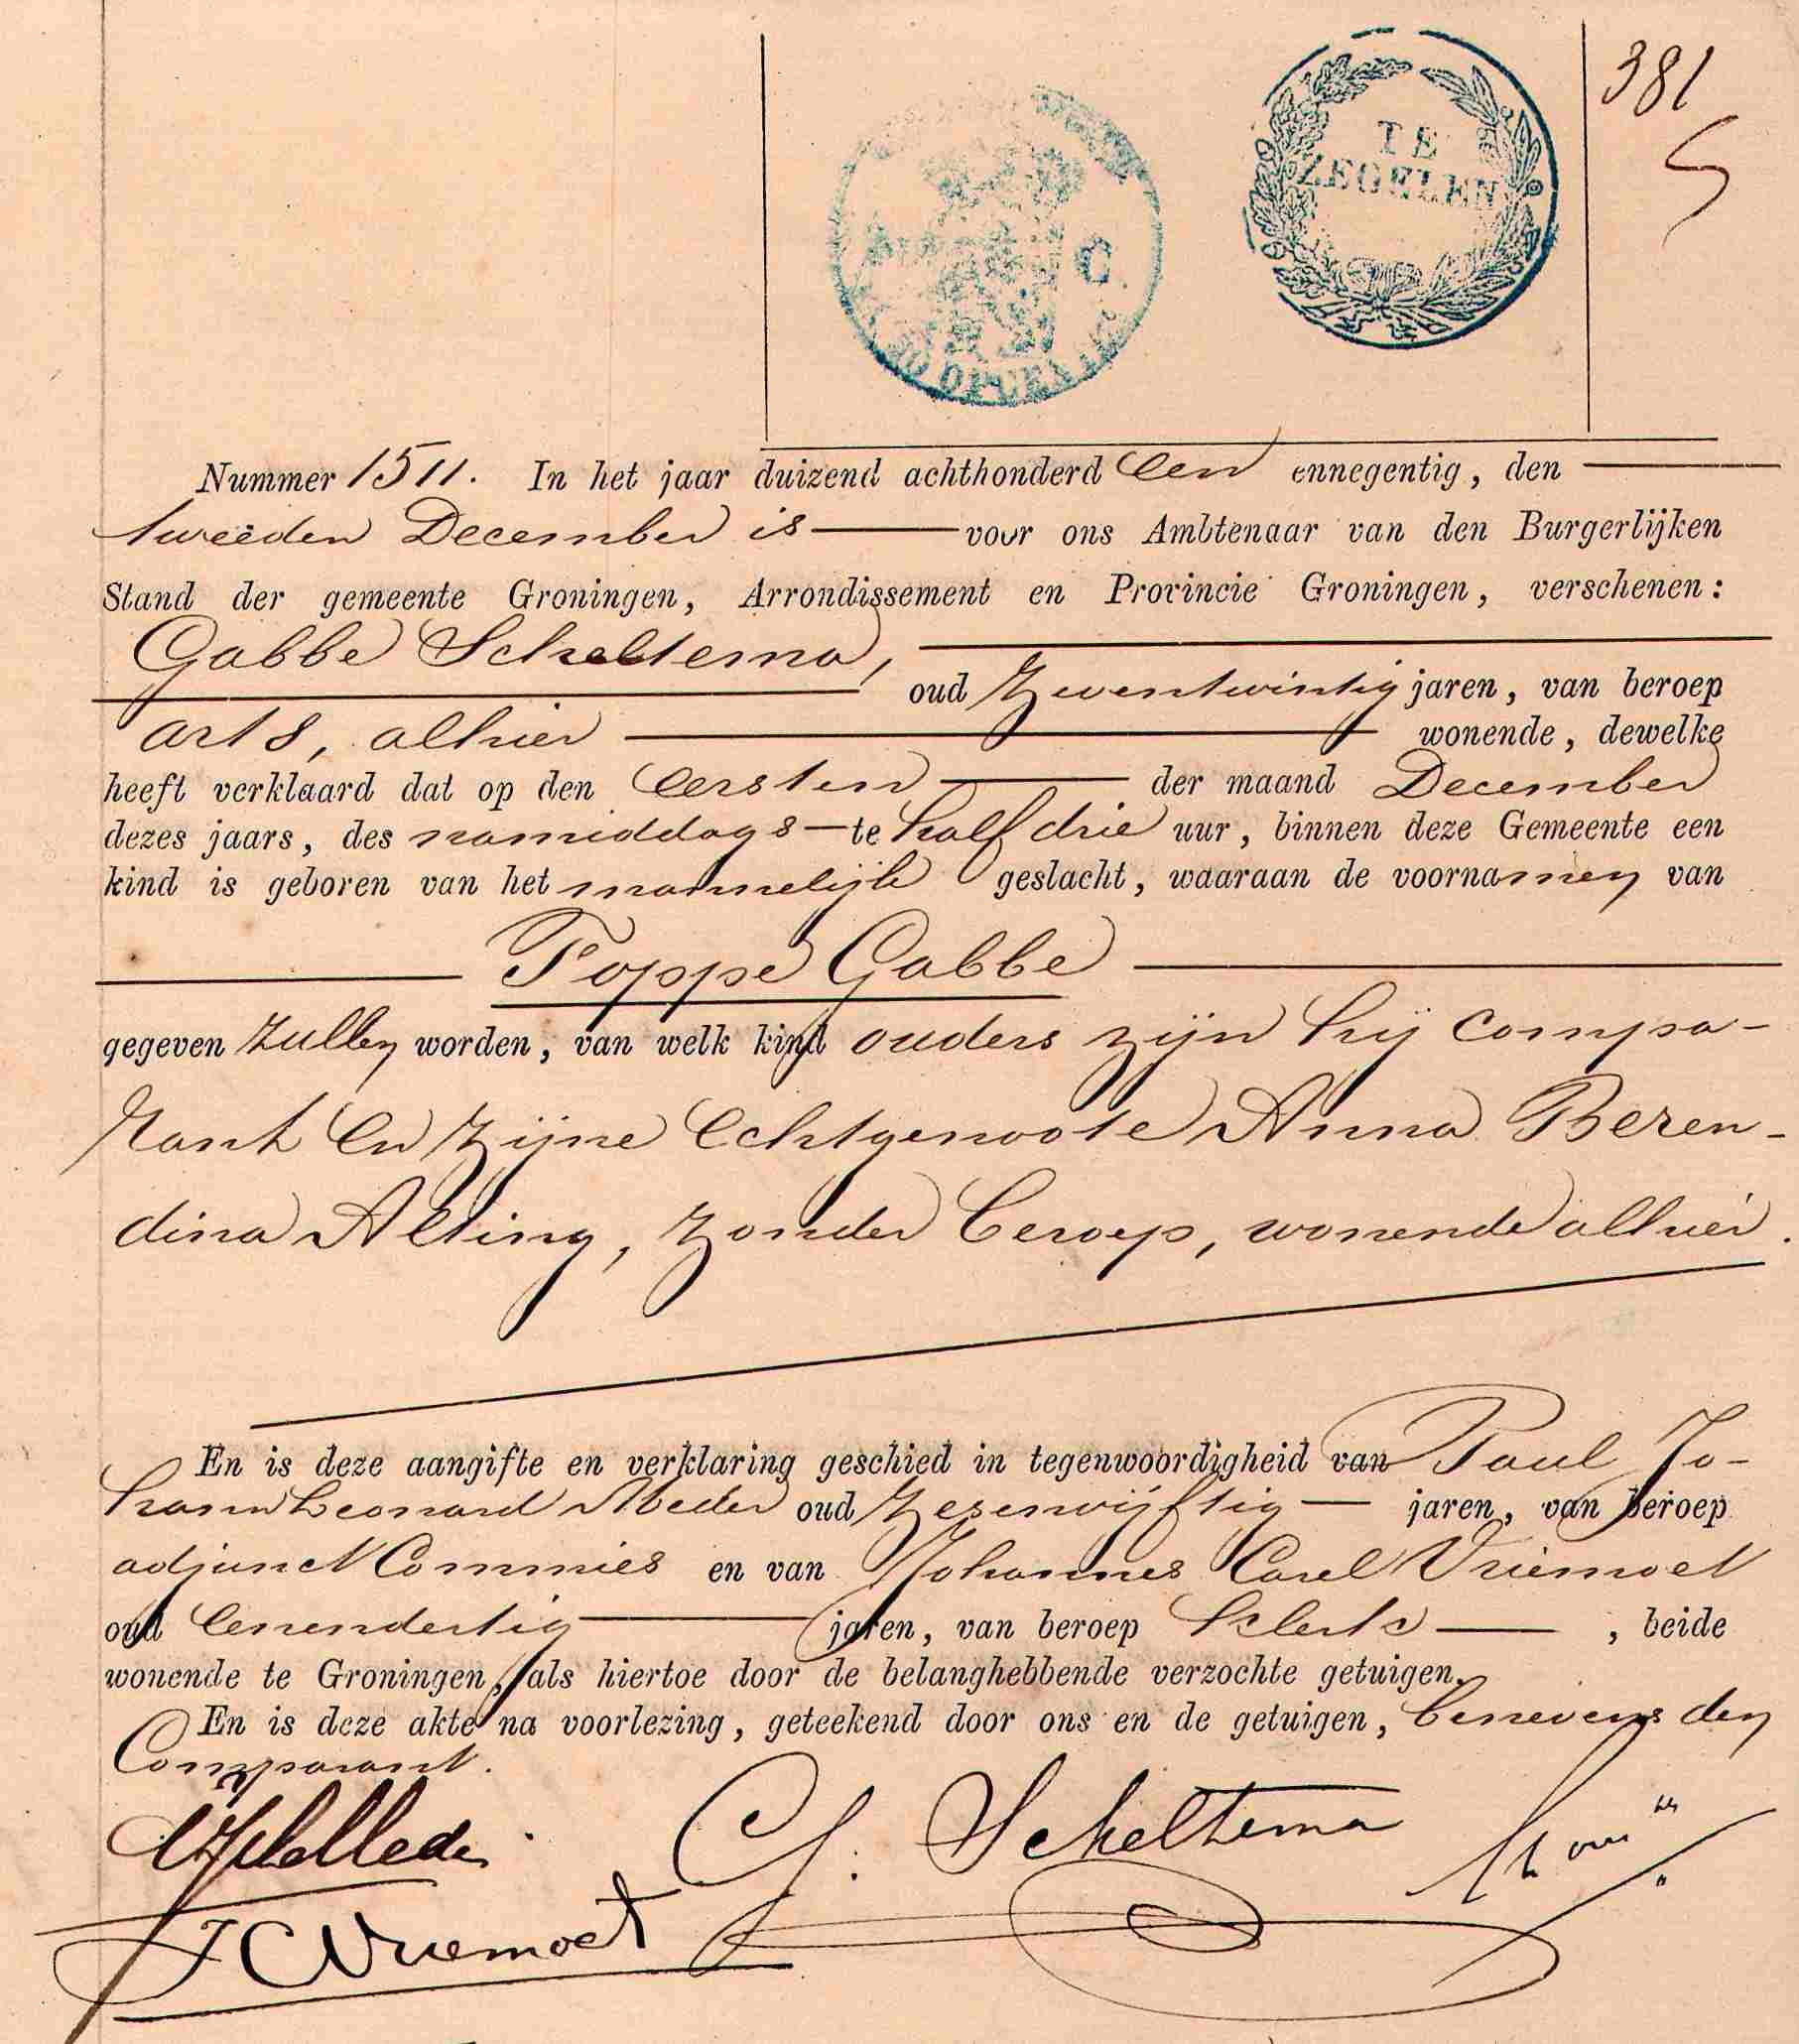 381
TE
ZEGELEN
C
OPCENTEN
Nummer 1511. In het jaar duizend achthonderd een ennegentig, den
tweeden December is voor ons Ambtenaar van den Burgerlijken
Stand der gemeente Groningen, Arrondissement en Provincie Groningen, verschenen:
Gabbe Scheltema,
oud zeventwintig jaren, van beroep
arts, alhier wonende, dewelke
heeft verklaard dat op den eersten der maand December
dezes jaars, des namiddags te half drie uur, binnen deze Gemeente een
kind is geboren van het mannelijk geslacht, waaraan de voornamen van
Foppe Gabbe
gegeven zullen worden, van welk kind ouders zijn hij compa-
rant en zijne echtgenoote Anna Beren-
dina Alting, zonder beroep, wonende alhier.
En is deze aangifte en verklaring geschied in tegenwoordigheid van Paul Jo-
hann Leonard Meder oud zesenvijftig jaren, van beroep
adjunct Commies en van Johannes Carel Vriemoet
oud eenendertig jaren, van beroep klerk, beide
wonende te Groningen, als hiertoe door de belanghebbende verzochte getuigen.
En is deze akte na voorlezing, geteekend door ons en de getuigen, benevens den
Comparant.
G. Scheltema
JC Vriemoet